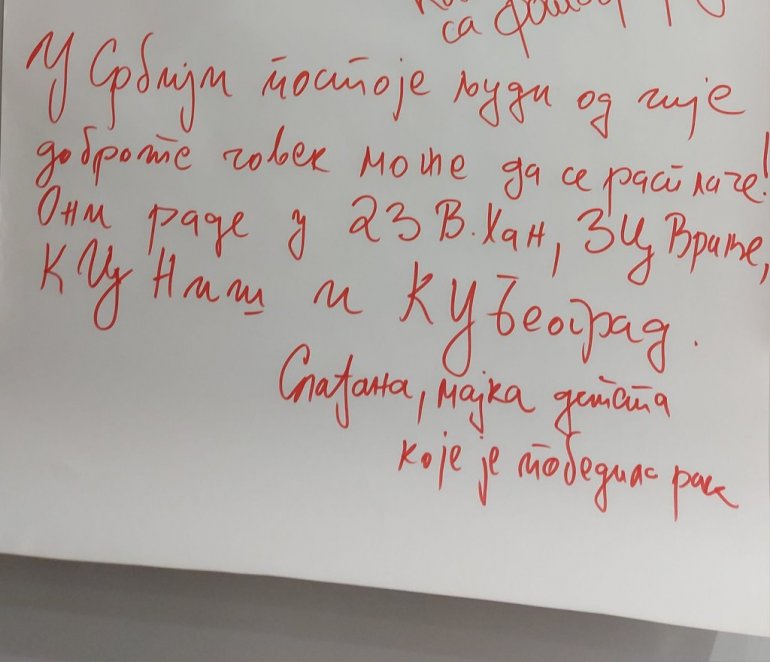 са
У Србији постоје људи од чије
доброте човек може да се расплаче!
Они раде у ДЗ В. Хан, ЗЦ Врање,
КЦ Ниш и КЦ Београд.
Слађана, мајка детета
које је победило рак